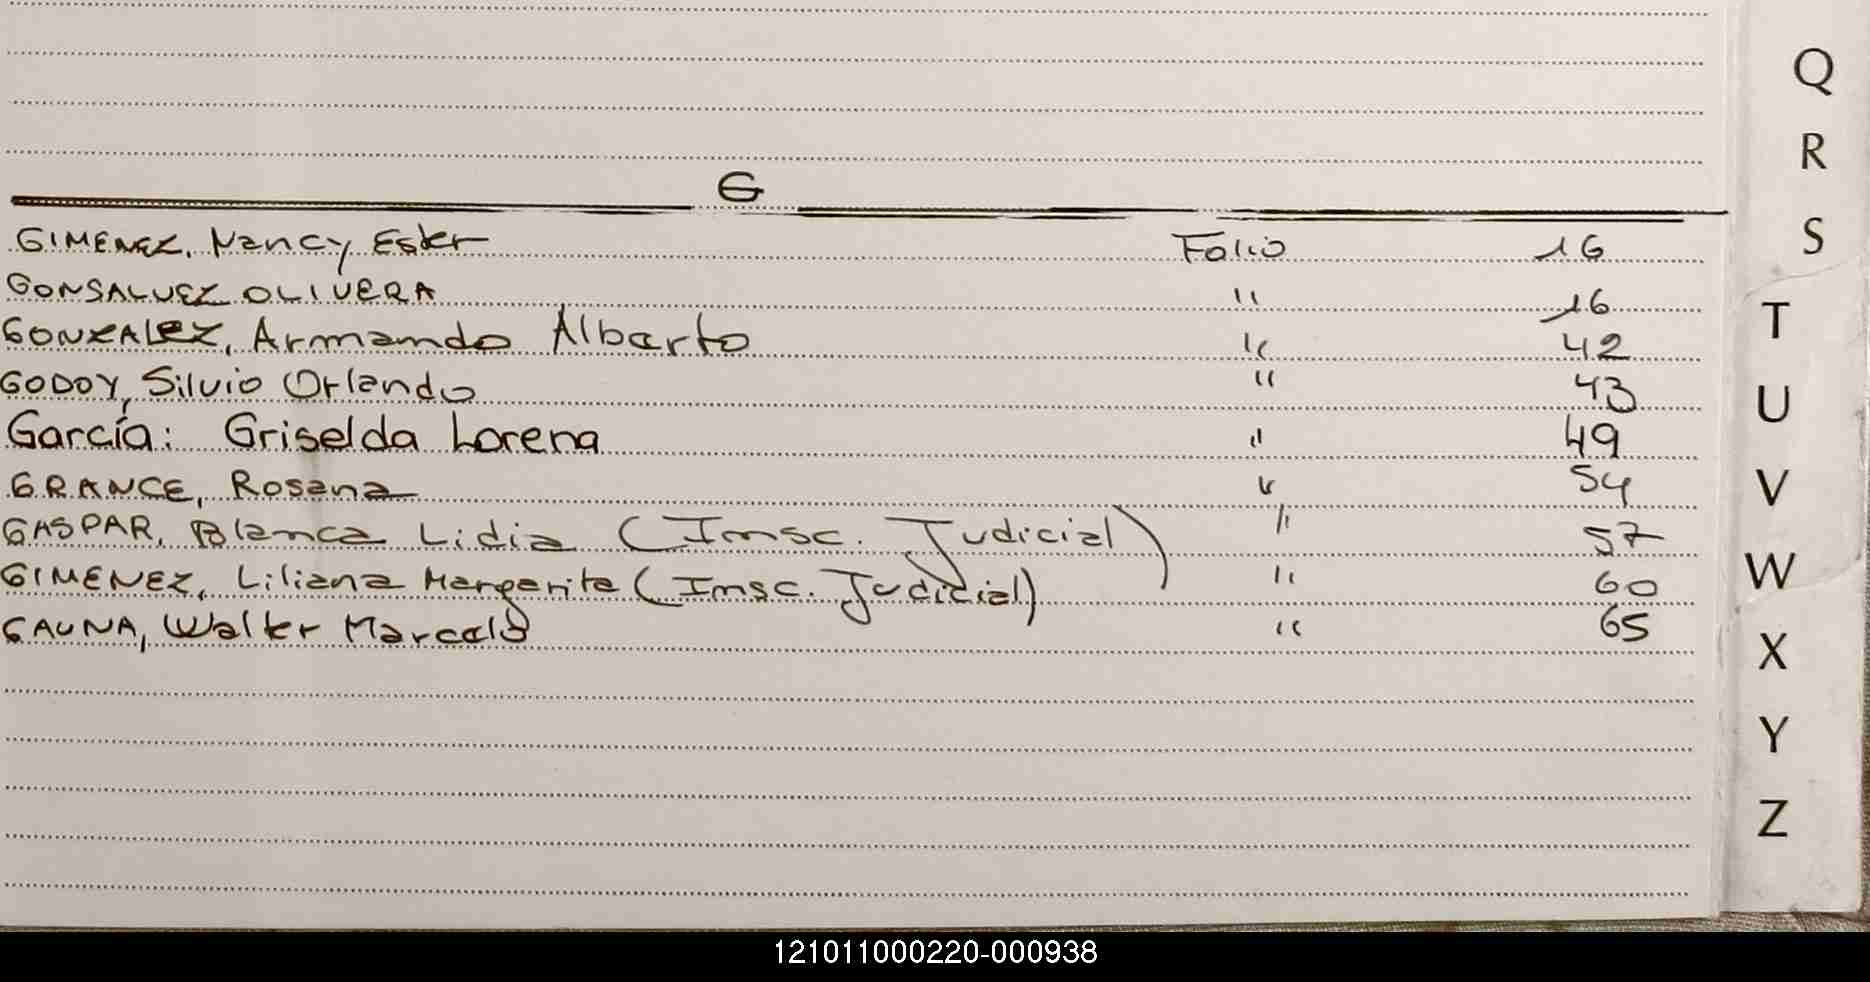 G
GIMENEZ, Nancy Ester Folio 16
GONSALVEZ OLIVERA " 16
GONZALEZ, Armando Alberto " 42
GODOY, Silvio Orlando " 43
García: Griselda Lorena " 49
GRANCE, Rosana " 54
GASPAR, Blanca Lidia (Insc. Judicial) " 57
GIMENEZ, Liliana Margarita (Insc. Judicial) " 60
GAUNA, Walter Marcelo " 65
Q
R
S
T
U
V
W
X
Y
Z
121011000220-000938